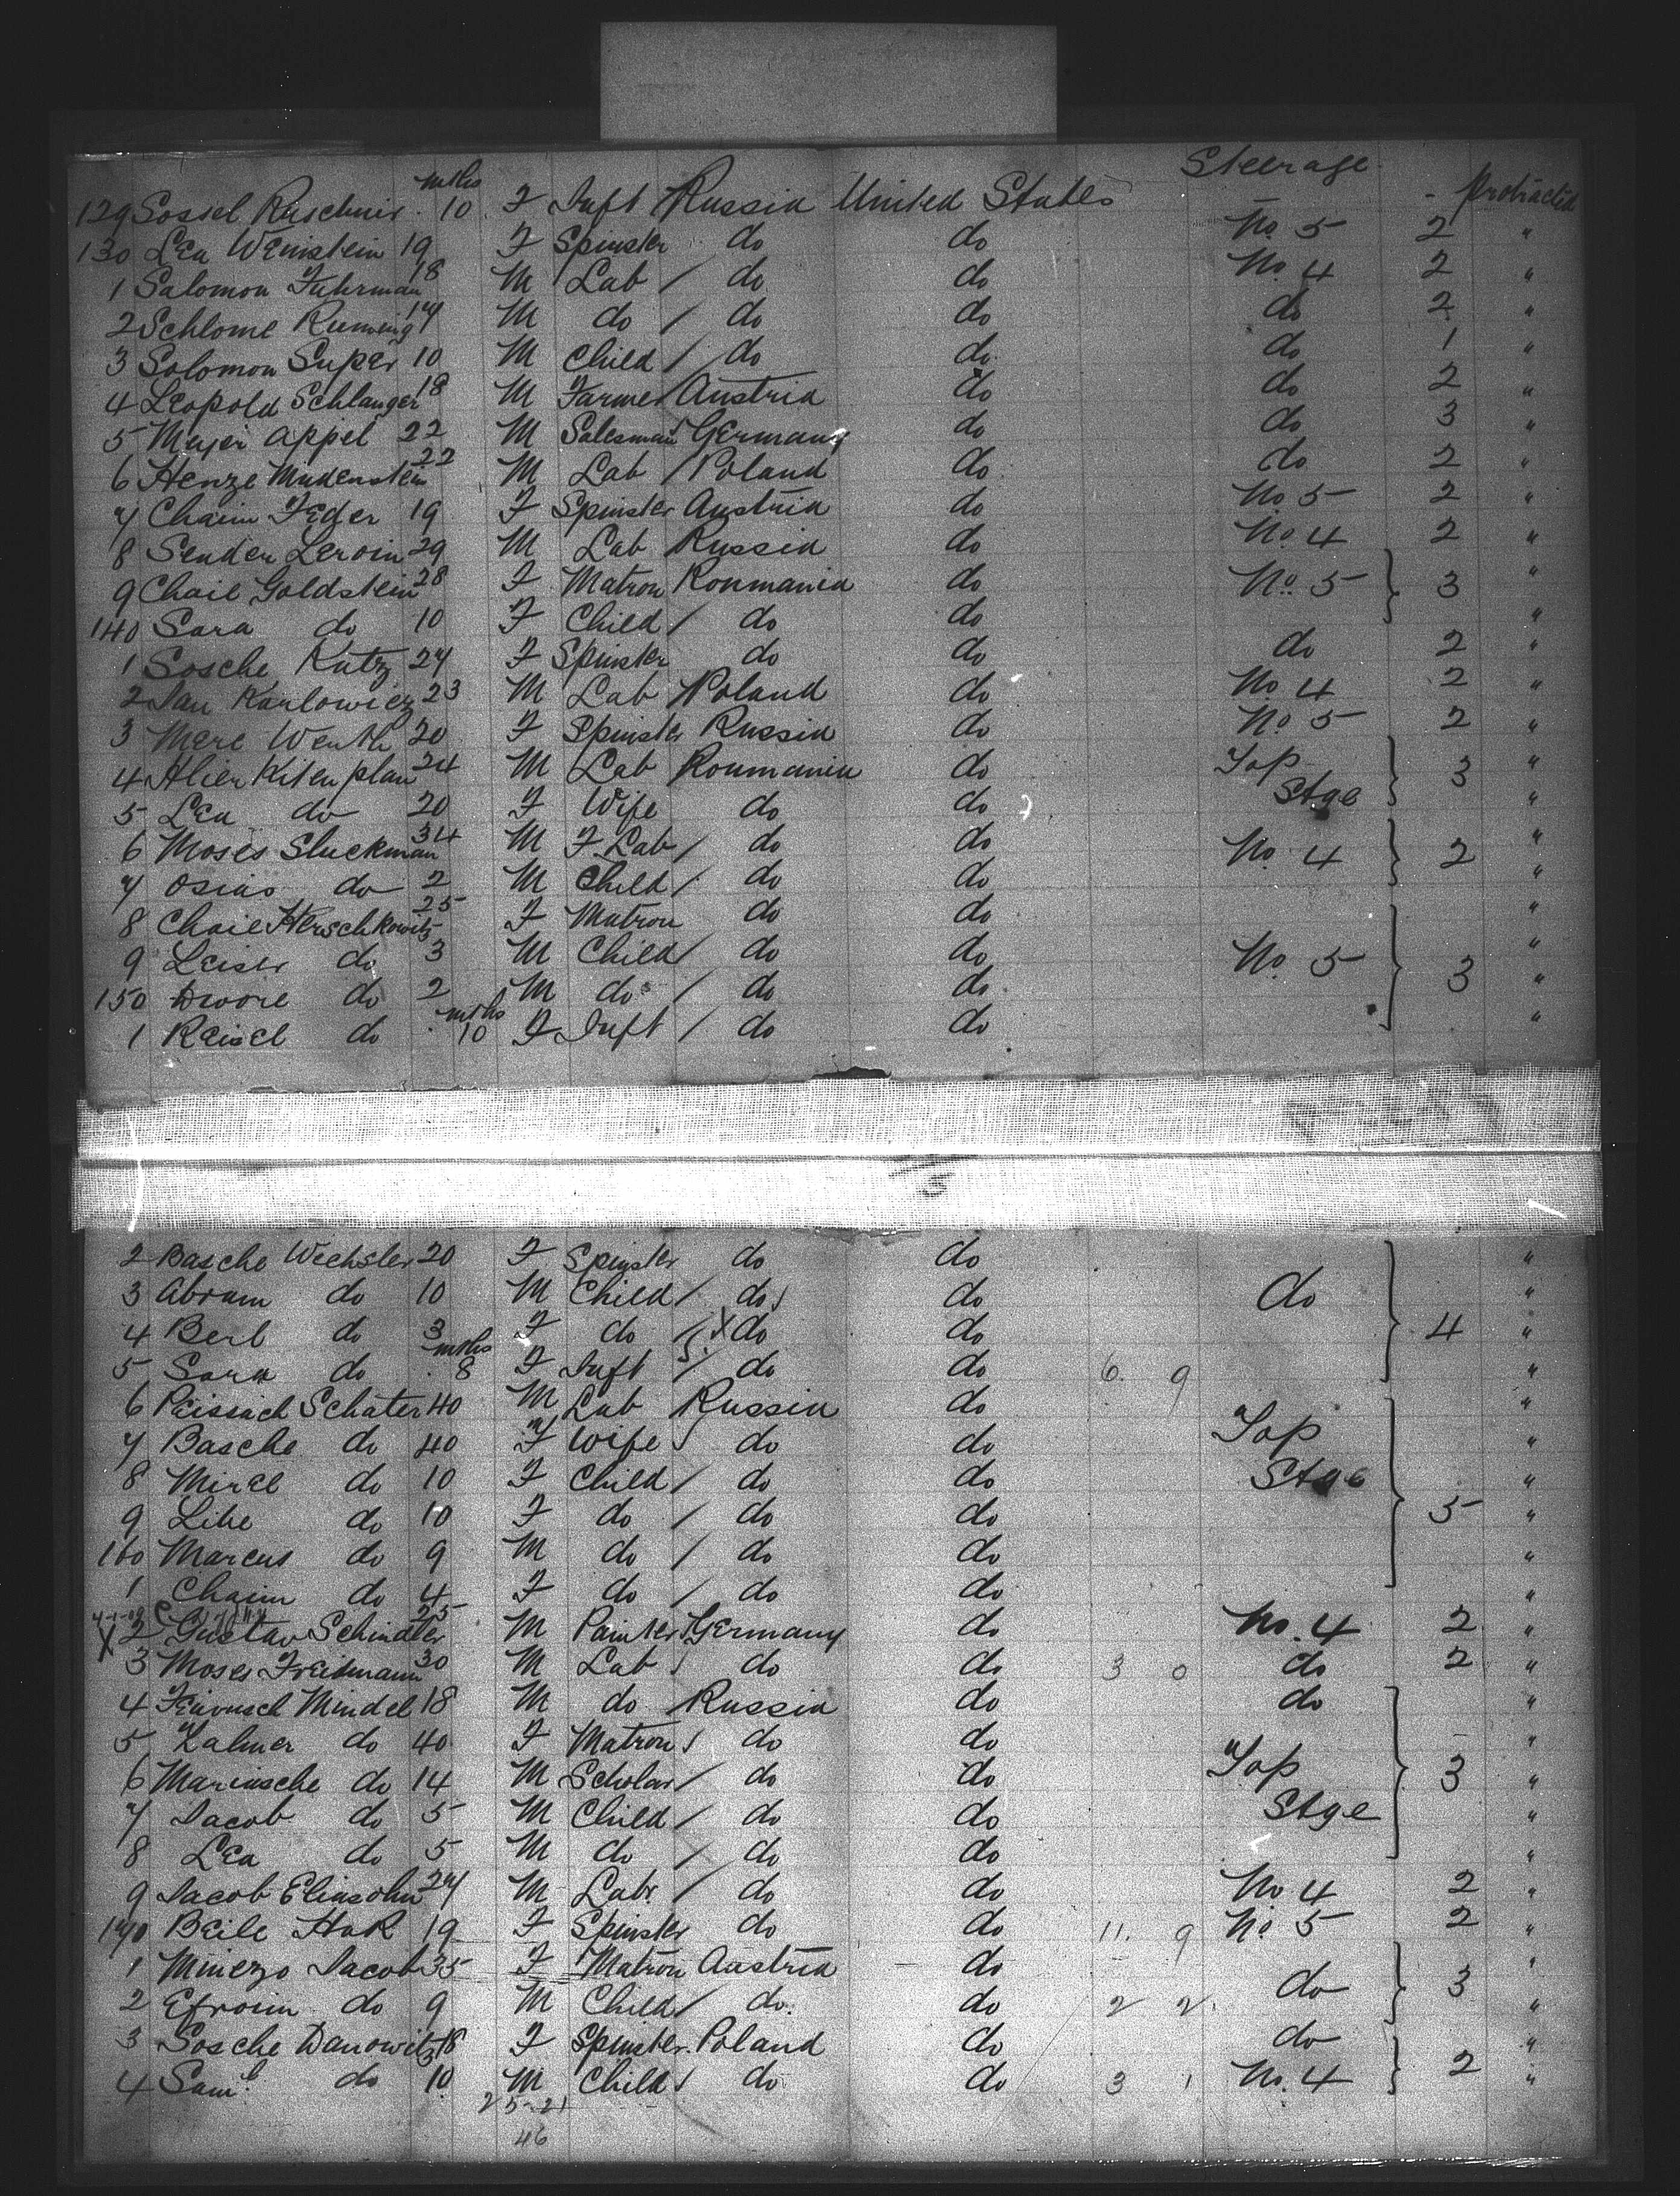 Steerage
mths - Protracted
129 Sossel Ruschnis . 10 F Inft Russia United States
130 Lea Weinstein 19 F Spinster do do No 5 2 "
1 Salomon Fuhrman 18 M Lab / do do No 4 2 "
2 Schlome 17 M do / do do do 2 "
3 Solomon Super 10 M Child / do do do 1 "
4 Leopold Schlanger 18 M Farmer Austria do do 2 "
5 Majer Appel 22 M Salesman Germany do do 3 "
6 Henze Mudenstein 22 M Lab / Poland do do 2 "
7 Chaim Feder 19 F Spinster Austria do No 5 2 "
8 Sender Leroin 29 M Lab Russia do No 4 2 "
9 Chaie Goldstein 28 F Matron Roumania do No. 5 3 "
140 Sara do 10 F Child / do do "
1 Sosche Katz 27 F Spinster do do do 2 "
2 Jan Karlowicz 23 M Lab / Poland do No 4 2 "
3 Mere Wenth 20 F Spinster Russia do No 5 2 "
4 Alier Kitenplan 24 M Lab Roumania do Top 3 "
5 Lea do 20 F Wife do do Stge "
6 Moses Sluckman 34 M F Lab / do do No 4 2 "
7 Osias do 2 M Child / do do "
8 Chaie Herschkowitz 25 F Matron do do "
9 Leiser do 3 M Child / do do No 5 3 "
150 Dwore do 2 M do / do do "
mths
1 Reisel do . 10 F Inft / do do "
3
2 Basche Wechsler 20 F Spinster do do "
3 Abram do 10 M Child / do do do "
4 Berl do 3 F do / X do do 4 "
mths
5 Sara do . 8 F Inft / do do 6. 9 "
6 Peissach Schater 40 M Lab Russia do "
7 Basche do 40 F Wife do do Top "
8 Mirel do 10 F Child / do do Stge "
9 Libe do 10 F do / do do 5 "
160 Marcus do 9 M do / do do "
1 Chaim do 4 F do / do do "
X 2 Gustav Schindler 25 M Painter Germany do No. 4 2 "
3 Moses Freidmann 30 M Lab / do do 3 0 do 2 "
4 Feiwusch Mindel 18 M do Russia do do "
5 Kalmer do 40 F Matron / do do "
6 Mariasche do 14 M Scholar / do do Top 3 "
7 Jacob do 5 M Child / do do Stge "
8 Lea do 5 M do / do do "
9 Jacob Eliasohn 27 M Labr / do do No 4 2 "
170 Beile Hak 19 F Spinster do do 11. 9 No 5 2 "
1 Minezo Jacob 35 F Matron Austria do "
2 Efroim do 9 M Child / do. do 2 2. do 3 "
3 Sosche Danowitz 18 F Spinster Poland do do "
4 Saml. do 10 M Child / do do 3 1 No. 4 2 "
25-21
46